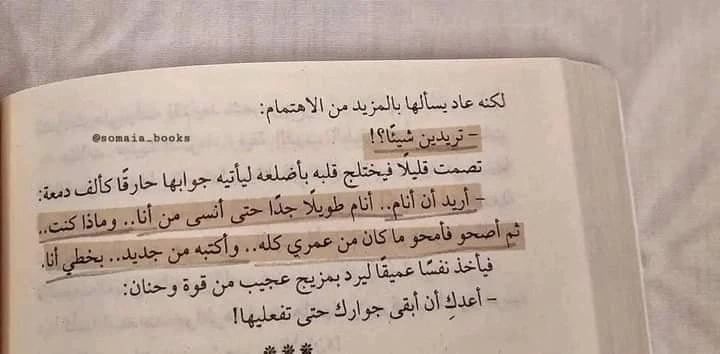 لكنه عاد يسألها بالمزيد من الاهتمام:
@somaia_books
- تريدين شيئًا؟!
تصمت قليلًا فيختلج قلبه بأضلعه ليأتيه جوابها حارقًا كألف دمعة:
- أريد أن أنام.. أنام طويلًا جدًا حتى أنسى من أنا.. وماذا كنت..
ثم أصحو فأمحو ما كان من عمري كله.. وأكتبه من جديد.. بخطي أنا.
فيأخذ نفسًا عميقًا ليرد بمزيج عجيب من قوة وحنان:
- أعدكِ أن أبقى جوارك حتى تفعليها!
***